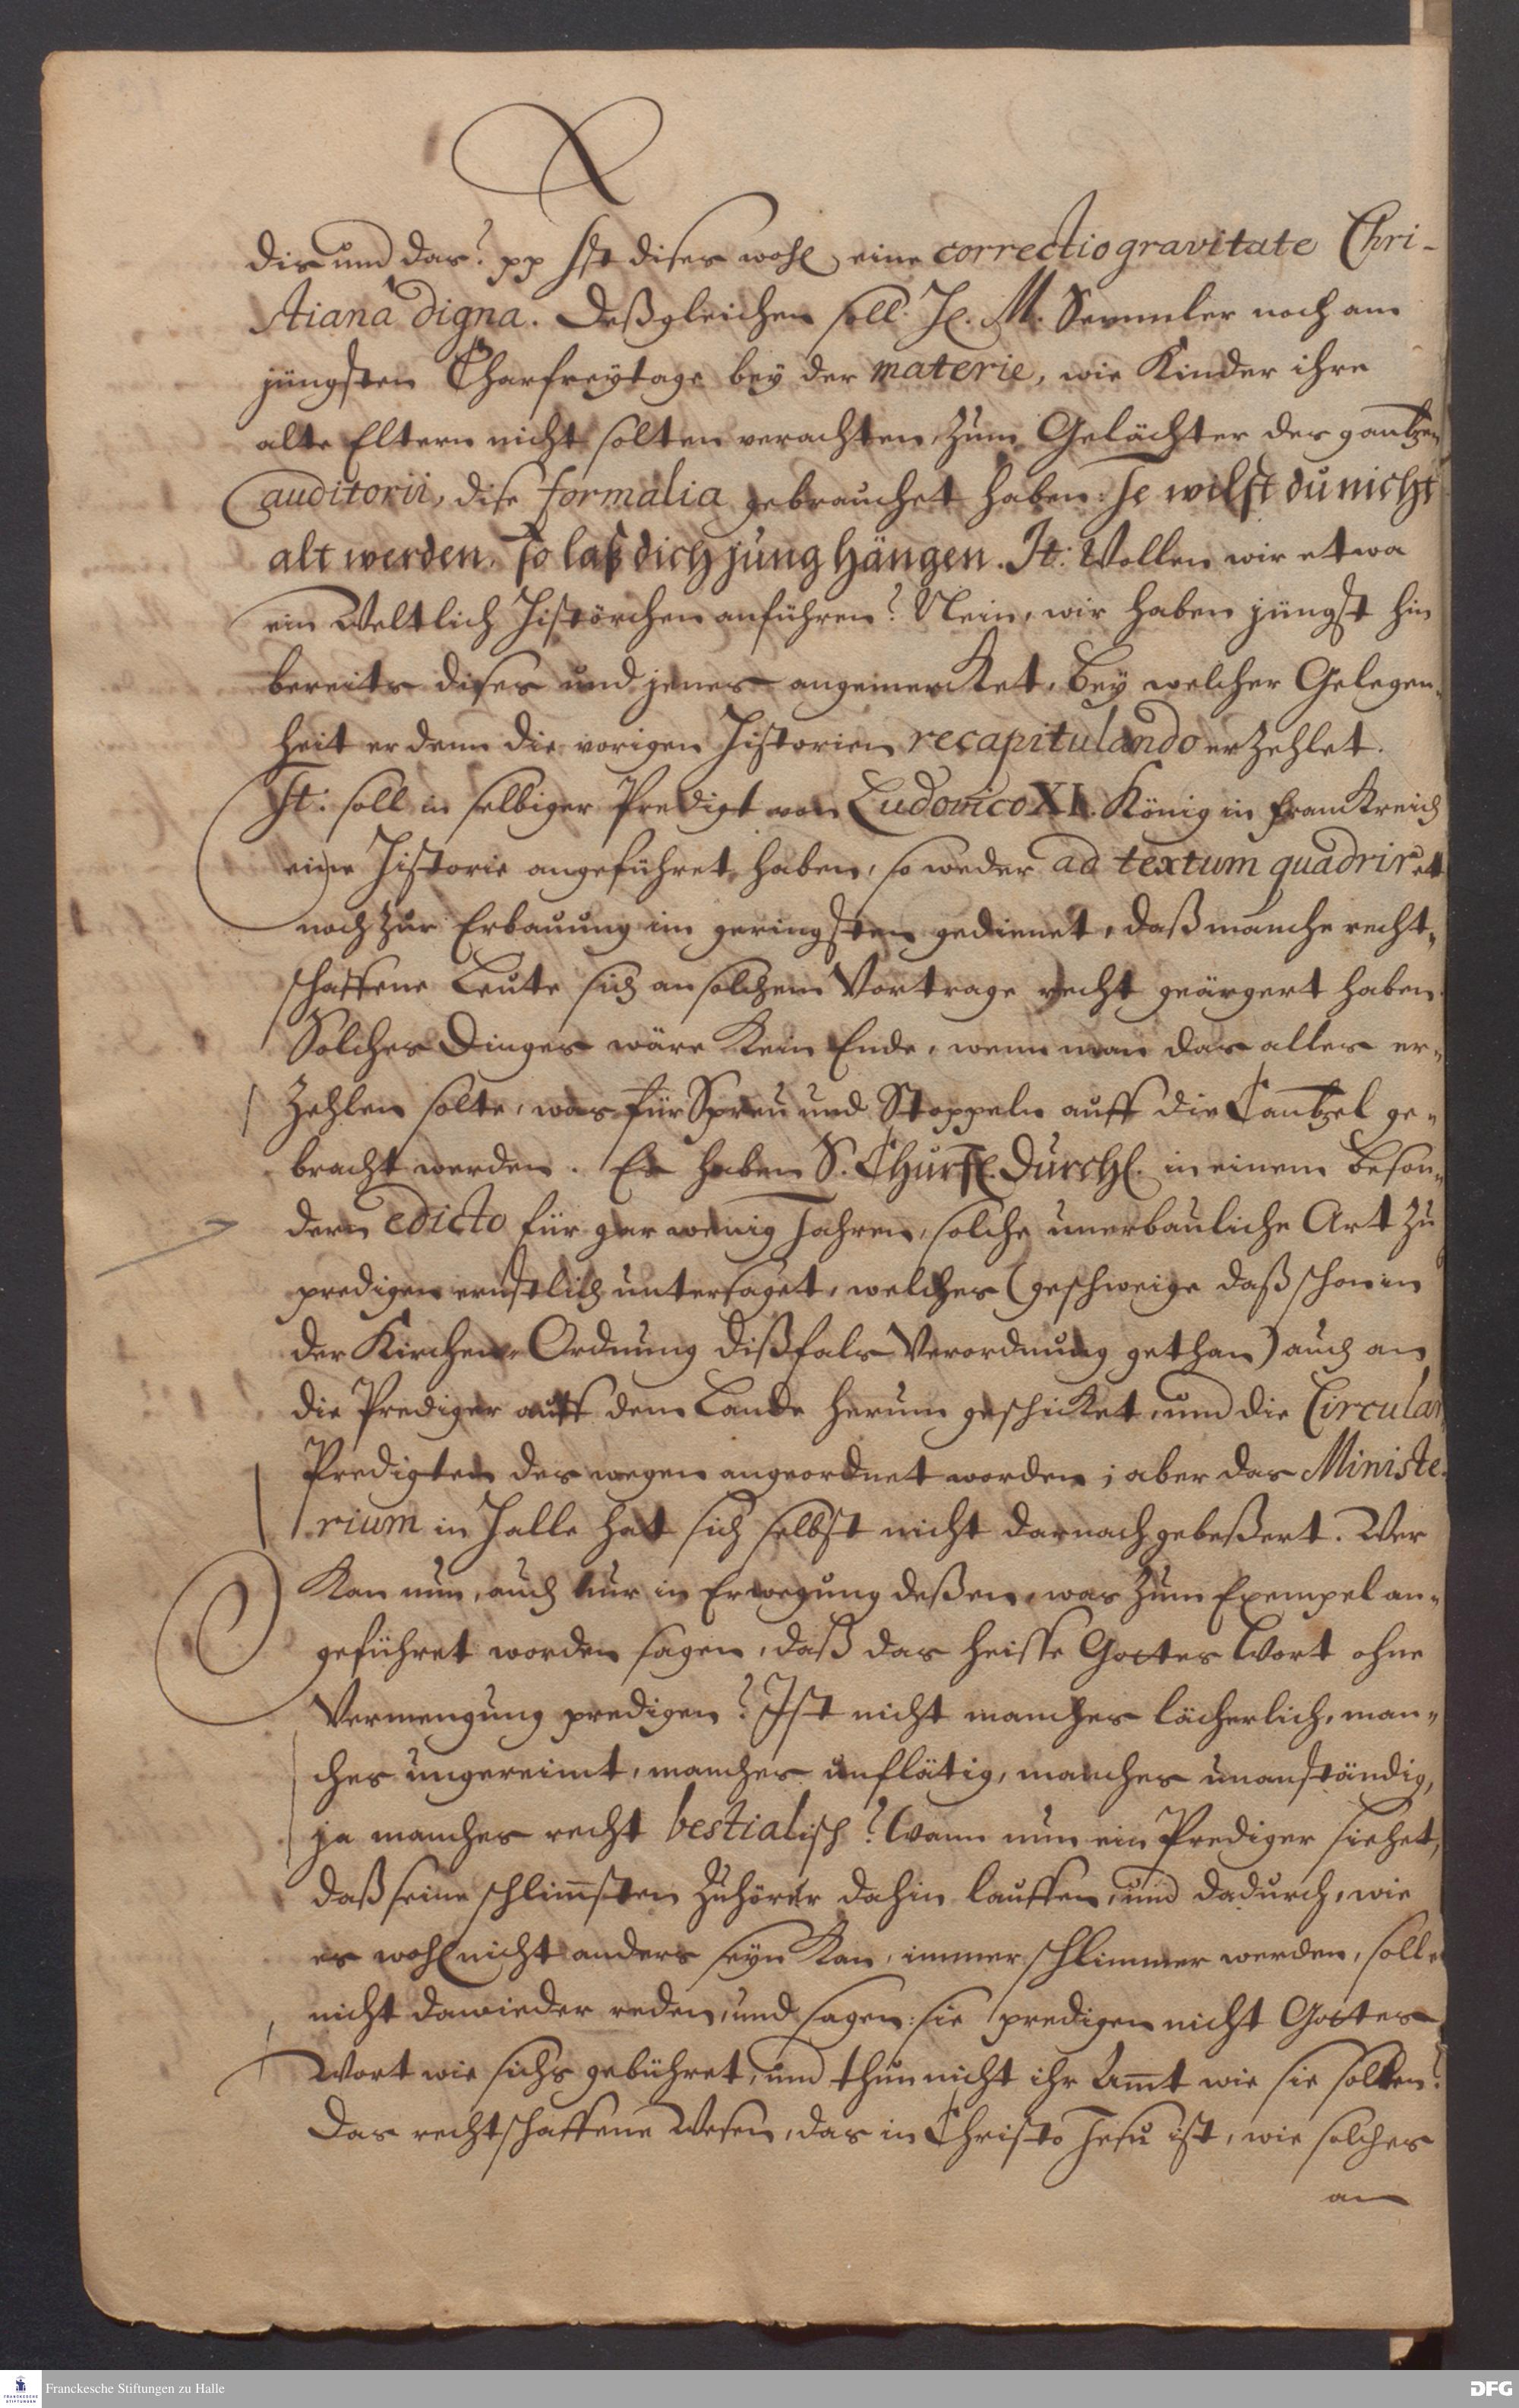 dis und das? pp Ist dises wohl eine correctio gravitate Chri-
stianâ digna. Deßgleichen soll H. M. Semmler noch am
jüngsten Charfreytage bey der materie, wie Kinder ihre
alte Eltern nicht solten verachten, zum Gelächter des gantzen
auditorii, dise formalia gebrauchet haben: Je wilst du nicht
alt werden, so laß dich jung hängen. It: Wollen wir etwa
ein Weltlich Histörchen anführen? Nein, wir haben jüngst hin
bereits dises und jenes angemerket, bey welcher Gelegen-
heit er denn die vorigen Historien recapitulando erzehlet.
It: soll in selbiger Predigt von Ludovico XI. König in Franckreich
eine Historie angeführet haben, so weder ad textum quadriret
noch zur Erbauung im geringsten gedienet, daß manche recht-
schaffene Leute sich an solchem Vortrage recht geärgert haben.
Solches Dinges wäre kein Ende, wenn man das alles er-
zehlen solte, was für Spreu und Stoppeln auff die Cantzel ge-
bracht werden. Es haben S. Churfl. Durchl. in einem beson-
dern edicto für gar wenig Jahren, solche unerbauliche Art zu
predigen ernstlich untersaget, welches (geschweige daß schon in
der Kirchen-Ordnung dißfals Verordnung gethan) auch an
die Prediger auff dem Lande herum geschicket, und die Circular
Predigten deswegen angeordnet worden; aber das Ministe-
rium in Halle hat sich selbst nicht darnach gebeßert. Wer
kan nun, auch nur in Erwegung deßen, was zum Exempel an-
geführet worden sagen, daß das heisse Gottes Wort ohne
Vermengung predigen? Ist nicht manches lächerlich, man-
ches ungereimt, manches unflätig, manches unanständig,
ja manches recht bestialisch? Wann nun ein Prediger siehet,
daß seine schlimsten Zuhörer dahin lauffen, und dadurch, wie
es wohl nicht anders seyn kan, immer schlimmer werden, soll er
nicht dawieder reden, und sagen: sie predigen nicht Gottes
Wort wie sichs gebühret, und thun nicht ihr Amt wie sie solten?
Das rechtschaffene Wesen, das in Christo Jesu ist, wie solches
an
Franckesche Stiftungen zu Halle
DFG